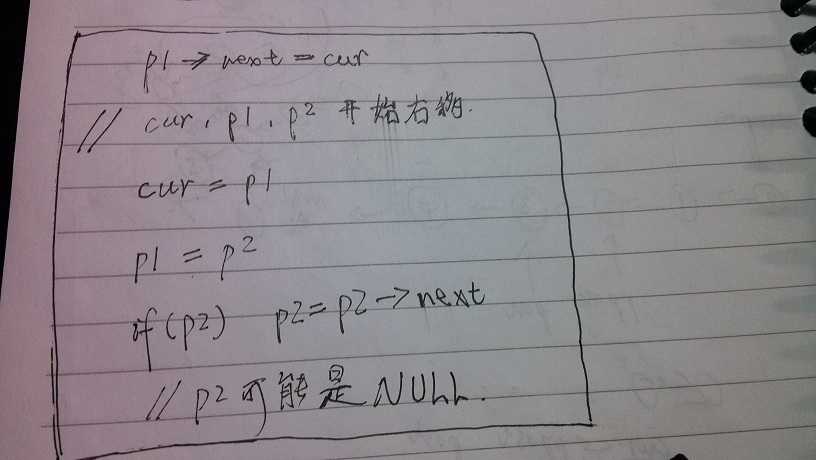 p1 → next = cur
// cur, p1, p2 开始右移.
cur = p1
p1 = p2
if(p2) p2 = p2 → next
// p2 可能是 NULL.